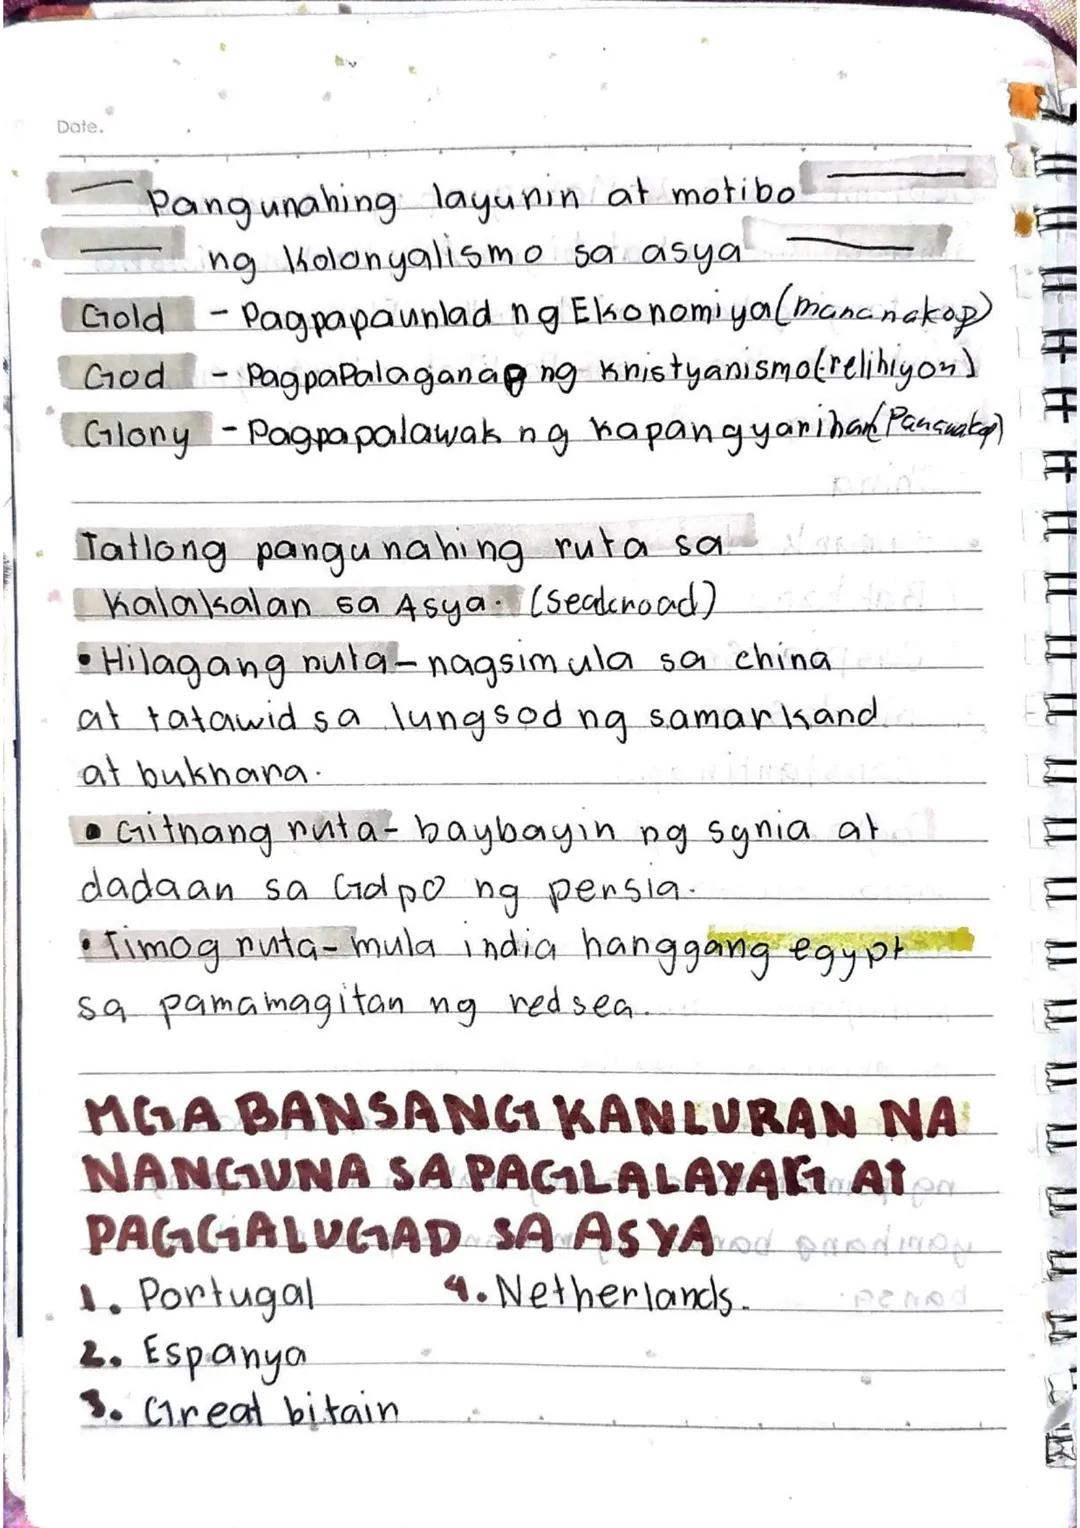 Date.
Pangunahing layunin at motibo
ng Kolonyalismo sa asya
Gold - Pagpapaunlad ng Ekonomiya (mananakop)
God - Pagpapalaganap ng Kristyanismo (relihiyon)
Glory - Pagpapalawak ng kapangyarihan
Tatlong pangunahing ruta sa
Kalakalan sa Asya.
• Hilagang ruta - nagsimula sa china
at tatawid sa lungsod ng samarkand
at bukhara.
• Gitnang ruta - baybayin ng syria at
dadaan sa Golpo ng persia.
• Timog ruta - mula india hanggang egypt
sa pamamagitan ng red sea.
MGA BANSANG KANLURAN NA
NANGUNA SA PAGLALAYAG AT
PAGGALUGAD SA ASYA
1. Portugal 4. Netherlands.
2. Espanya
3. Great bitain